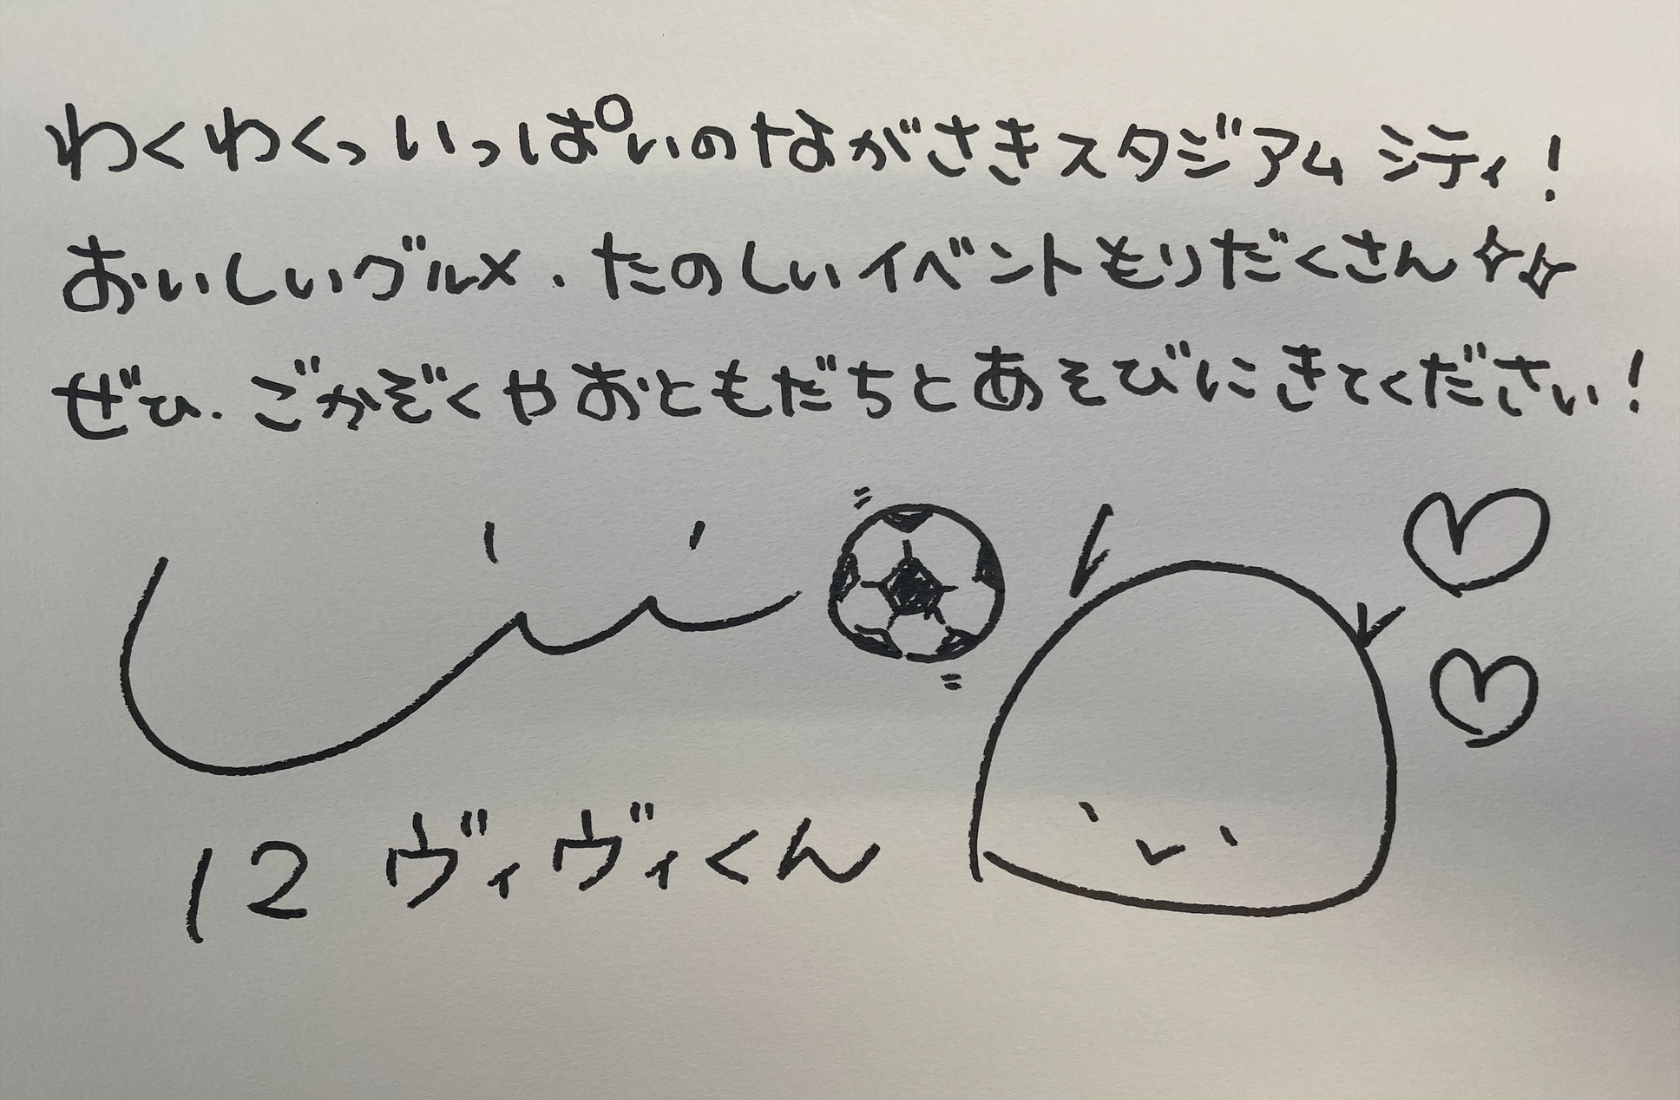 わくわくっいっぱいのながさきスタジアムシティ！
おいしいグルメ、たのしいイベントもりだくさん✧✧
ぜひ、ごかぞくやおともだちとあそびにきてください！
12 ヴィヴィくん